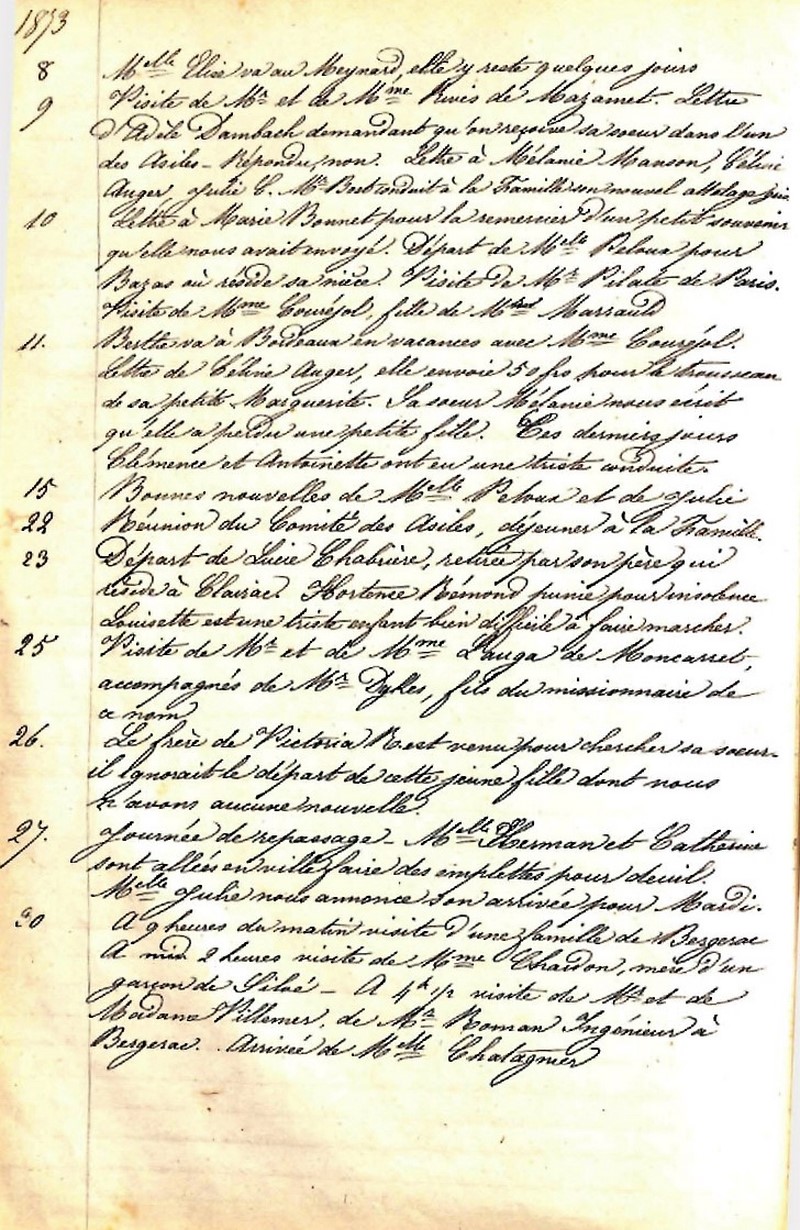 1873
8 Melle Elise va au Meynard, elle y reste quelques jours
9 Visite de Mr et de Mme Rivès de Mazamet. Lettre
d'Adèle Dambach demandant qu'on reçoive sa soeur dans l'un
des Asiles - Répondu, non. Lettre à Mélanie Manson, Céline
Auger, Julie C. Mr Bost conduit à la Famille son nouvel attelage
10 Lettre à Marie Bonnet pour la remercier d'un petit souvenir
qu'elle nous avait envoyé. Départ de Melle Peloux pour
Bazas où réside sa nièce. Visite de Mr Pilate de Paris.
Visite de Mme Couréjol, fille de Marraud
11. Berthe va à Bordeaux en vacances avec Mme Couréjol.
Lettre de Céline Auger, elle envoie 50 frs pour le trousseau
de sa petite Marguerite. Sa soeur Mélanie nous écrit
qu'elle a perdu une petite fille. Ces derniers jours
Clémence et Antoinette ont eu une triste conduite.
15 Bonnes nouvelles de Melle Peloux et de Julie
22 Réunion du Comité des Asiles, déjeuner à la Famille.
23 Départ de Lucie Chabrière, retirée par son père qui
réside à Clairac. Hortence Rémond punie pour insolence
Louisette est une triste enfant bien difficile à faire marcher.
25 Visite de Mr et de Mme Lauga de Moncarret,
accompagnés de Mr Dykes, fils du missionnaire de
ce nom
26. Le frère de Victoria R. est venu pour chercher sa soeur -
il ignorait le départ de cette jeune fille dont nous
n'avons aucune nouvelle.
27. Journée de repassage - Melle Herman et Catherine
sont allées en ville faire des emplettes pour deuil.
Melle Julie nous annonce son arrivée pour Mardi.
30 A 9 heures du matin visite d'une famille de Bergerac
A 2 heures visite de Mme Chardon, mère d'un
garçon de Siloé - A 4h 1/2 visite de Mr et de
Madame Villemer, de Mr Roman Ingénieur à
Bergerac. Arrivée de Melle Chatagnier